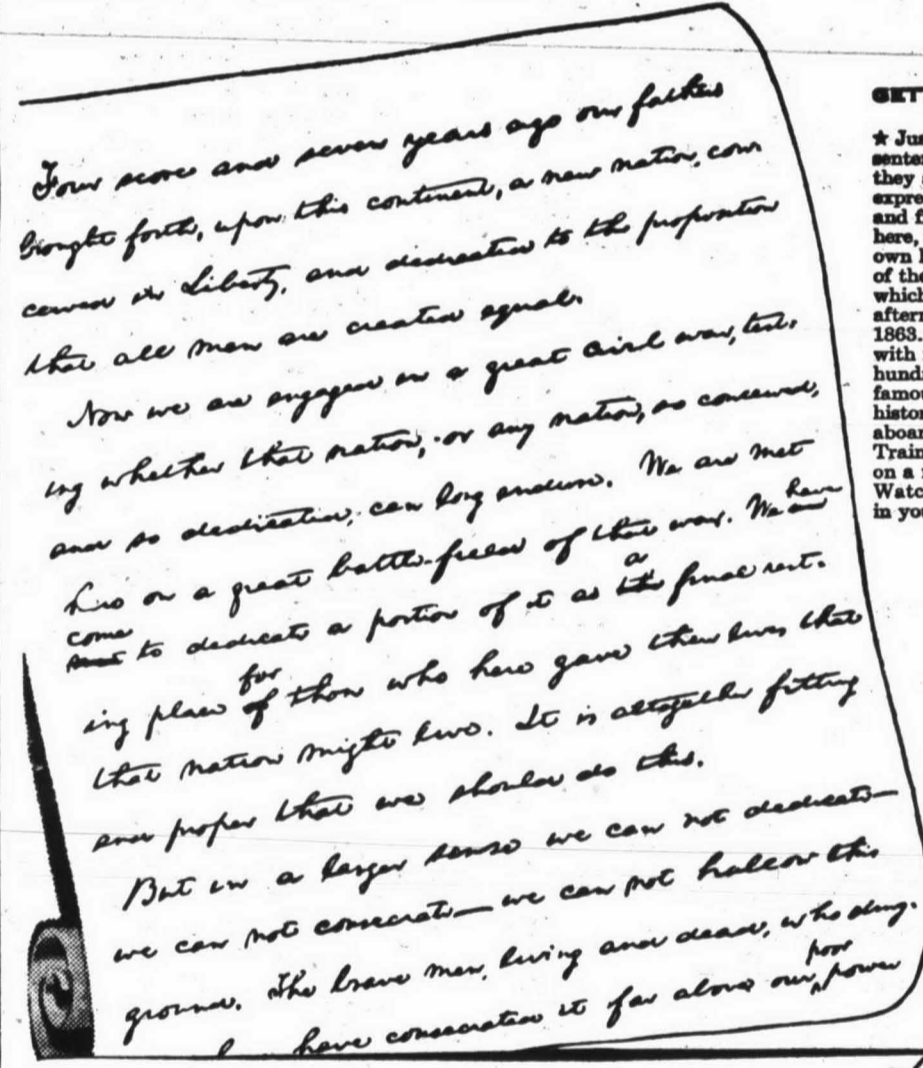 Four score and seven years ago our fathers
brought forth, upon this continent, a new nation, con-
ceived in Liberty, and dedicated to the proposition
that all men are created equal.
Now we are engaged in a great civil war, test-
ing whether that nation, or any nation, so conceived,
and so dedicated, can long endure. We are met
here on a great battle-field of that war. We are
have
met to dedicate a portion of it as the final rest-
come
a
ing place of those who here gave their lives that
for
that nation might live. It is altogether fitting
and proper that we should do this.
But in a larger sense we can not dedicate—
we can not consecrate—we can not hallow this
ground. The brave men, living and dead, who strug-
have consecrated it far above our power
poor
GET
★ Jus
senter
they
expre
and f
here,
own
of the
which
aftern
1863.
with
hund
famou
histor
aboar
Train
on a
Watc
in you